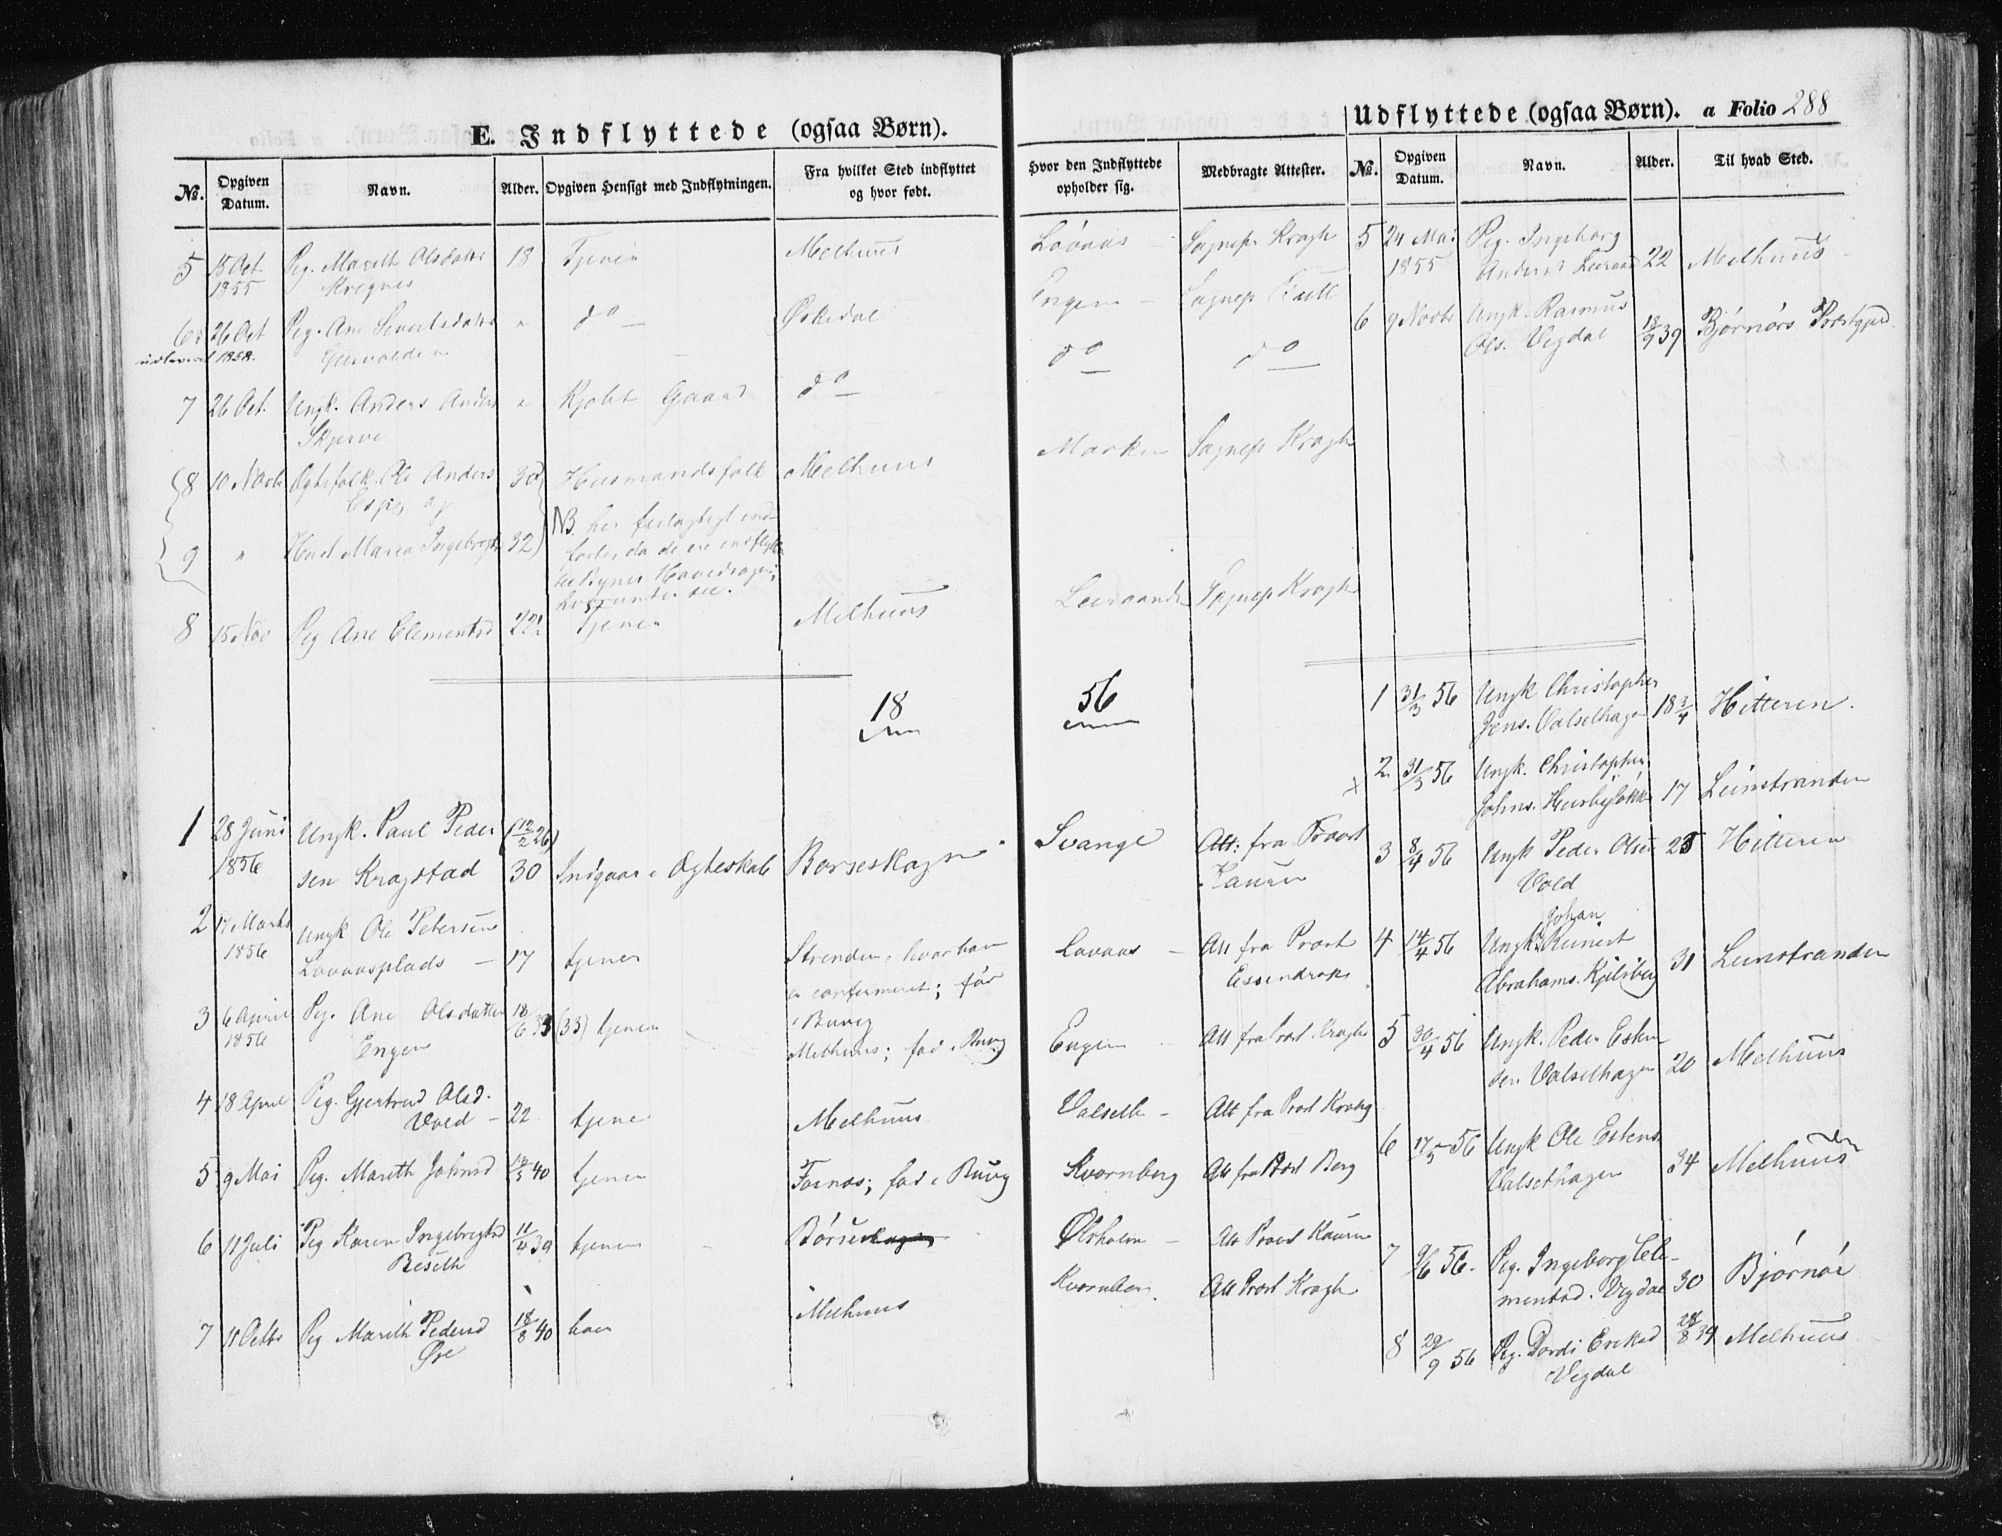 E. Indflyttede (ogsaa Børn).
No. Opgiven Datum. Navn. Alder. Opgiven Hensigt med Indflytningen. Fra hvilket Sted indflyttet og hvor født.
Hvor den Indflyttede opholder sig. Medbragte Attester.
5 15 Oct 1855 Pig. Marith Olsdatter 18 Tjene Melhuus Løvaas Sognepr Kragh
26 Oct 1852. Pig. Ane Sivertsdatter " do Ørkedal Engen Sognepr
7 26 Oct. Ungk. Anders Anders Skjerve " Kjøbt Gaard do do do
8 10 Novbr Ægtefolk Ole Anders Espes og 30 Husmandsfolk Melhuus Marken Sognepr Kragh
9 " Maria Ingebrigts 32
NB her feilagtigt ind-
førte, da de ere indflytt
hvorunder see.
8 15 Nov Pig Ane Clements 22½ Tjene Melhuus Leeraanden Sognepr Kragh
18 56
1 28 Juni 1856 Ungk. Paul Pedersen Kragstad (12/2 26) 30 Indgaar i Ægteskab Børseskogn Svange Att: fra Provst Kaurin
2 17 Marts 1856 Ungk Ole Petersen Løvaasplads 17 tjene Strinden, hvor han er confirmeret; fød i Buvig Løvaas Att fra Provst Essendrop
3 6 April 1856 Pig. Ane Olsdatter Engen (33) tjene Melhuus; fød i Buvig Engen Att fra Provst Kragh
4 18 April Pig. Gjertrud Olsd. Vold 22 tjene Melhuus Valseth Att fra Provst Kragh
5 9 Mai Pig. Marith Johnsd 40 tjene fød i Buvig Kvernberg Att fra Provst Berg
6 11 Juli Pig Karen Ingebrigtsd Beseth 11/4 39 tjene Børseskogn Ølsholm Att Provst Kaurin
7 11 Octbr Pig Marith Pedersd Øre 18/8 40 Melhuus Kvernberg Att Provst Kragh
Udflyttede (ogsaa Børn). a Folio 288
No. Opgiven Datum. Navn. Alder. Til hvad Sted.
5 24 Mai 1855 Pig. Ingeborg Andersd Leeraand 22 Melhuus
6 9 Novbr Ungk. Rasmus Ols. Vigdal 18/9 39 Bjørnørs Præstegjeld
1 31/3 56 Ungk Christopher Jens. Valsethagen 18 3/4 Hitteren.
2 31/3 56 Ungk. Christopher Johns. Husbyløkk 17 Leinstranden
3 8/4 56 Ungk Peder Olsen Vold 25 Hitteren
4 14/4 56 Ungk. Johan Reinert Abrahams. Kjelsberg 31 Leinstranden
5 30/4 56 Ungk. Peder Estensen Valsethagen 20 Melhuus
6 17/5 56 Ungk Ole Estens. Valsethagen 34 Melhuus
7 9/6 56. Pig. Ingeborg Clementsd. Vigdal 30 Bjørnør
8 29/9 56 Pig. Dordi Eriksd Vigdal 28/8 39 Melhuus